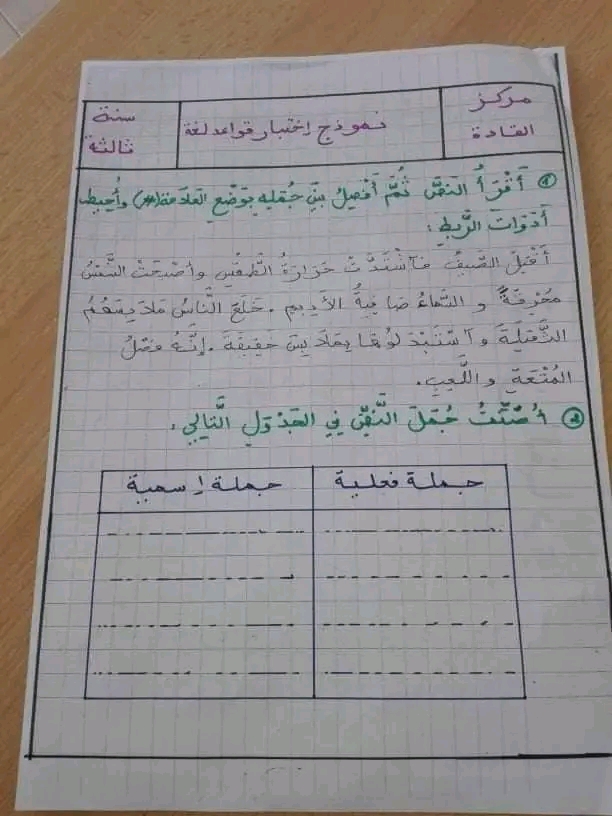 مركز القادة
نموذج اختبار قواعد لغة
سنة ثالثة
1 أَقْرَأُ النَّصَّ ثُمَّ أَفْصِلُ بَيْنَ جُمَلِهِ بِوَضْعِ العَلَامَةِ (#) وأُحِيطُ
أَدَوَاتَ الرَّبْطِ :
أَقْبَلَ الصَّيْفُ فَاَشْتَدَّتْ حَرَارَةُ الطَّقْسِ وأَصْبَحَتْ الشَّمْسُ
مُحْرِقَةً و السَّمَاءُ صَافِيَةُ الأَدِيمِ . خَلَعَ النَّاسُ مَلَابِسَهُمُ
الثَّقِيلَةَ واَسْتَبْدَلُوهَا بِمَلَابِسَ خَفِيفَة . إِنَّهُ فَصْلُ
المُتْعَةِ واللَّعِبِ .
2 أُصَنِّفُ جُمَلَ النَّصِّ فِي الجَدْوَلِ التَّالِي :
جملة فعلية
جملة إسمية